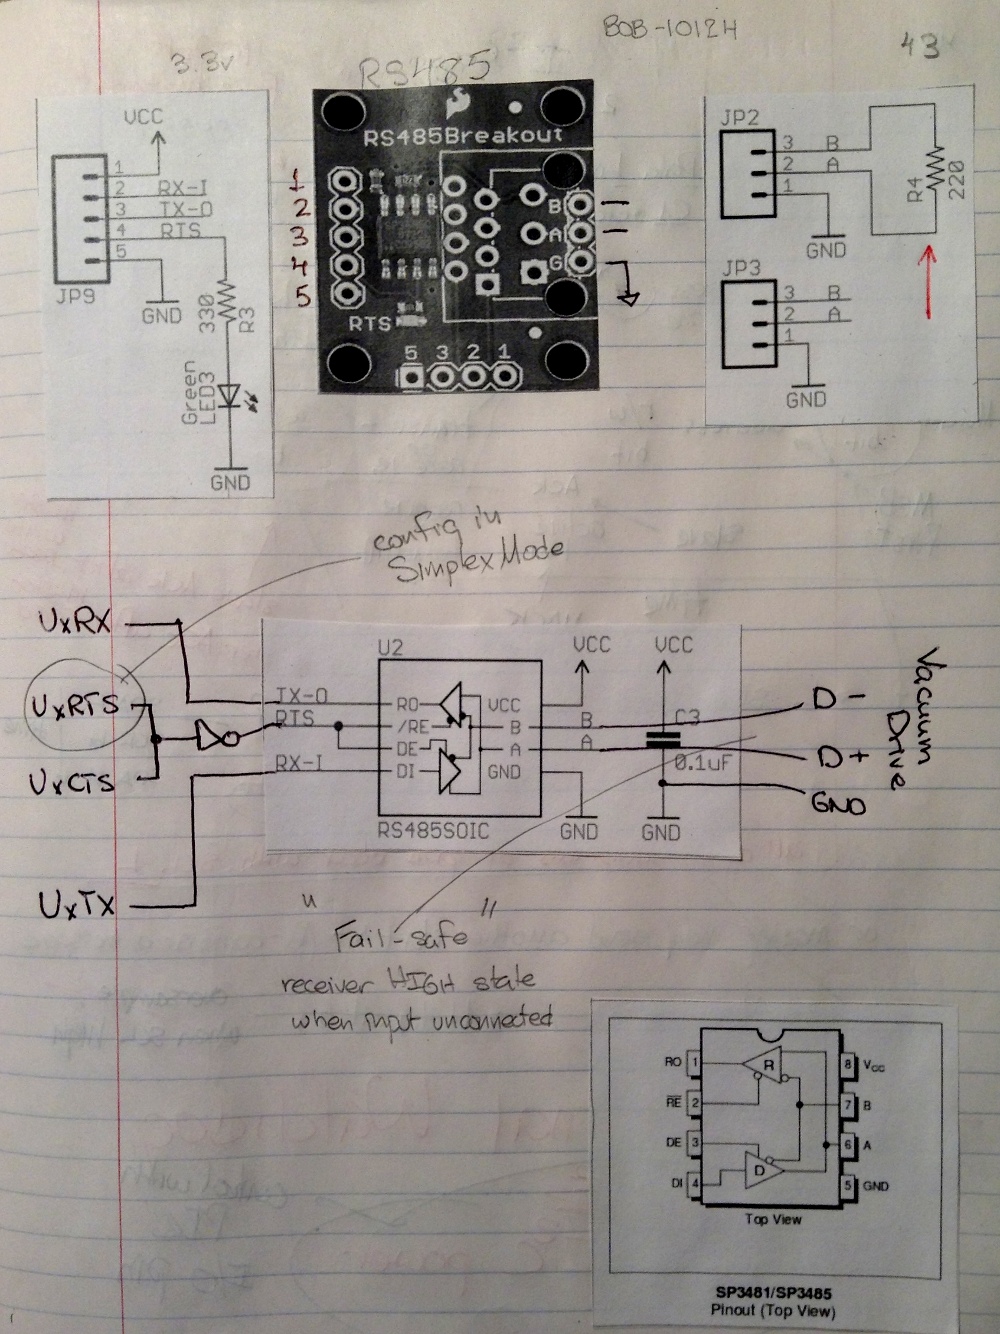 BOB-10124
43
3.3v
RS485
VCC
1
2 RX-I
3 TX-O
4 RTS
5
JP9
GND
330
R3
Green
LED3
GND
RS485Breakout
1
2
3
4
5
B
A
G
RTS
5 3 2 1
JP2
3 B
2 A
1
GND
R4
220
JP3
3 B
2 A
1
GND
config in
Simplex Mode
UxRX
UxRTS
UxCTS
UxTX
TX-O
RTS
RX-I
U2
RO
/RE
DE
DI
VCC
B
A
GND
RS485SOIC
VCC
B
A
GND
VCC
C3
0.1uF
GND
D -
D +
GND
Vacuum
Drive
" "
Fail-safe
receiver HIGH state
when input unconnected
RO 1
RE 2
DE 3
DI 4
R
D
8 VCC
7 B
6 A
5 GND
Top View
SP3481/SP3485
Pinout (Top View)